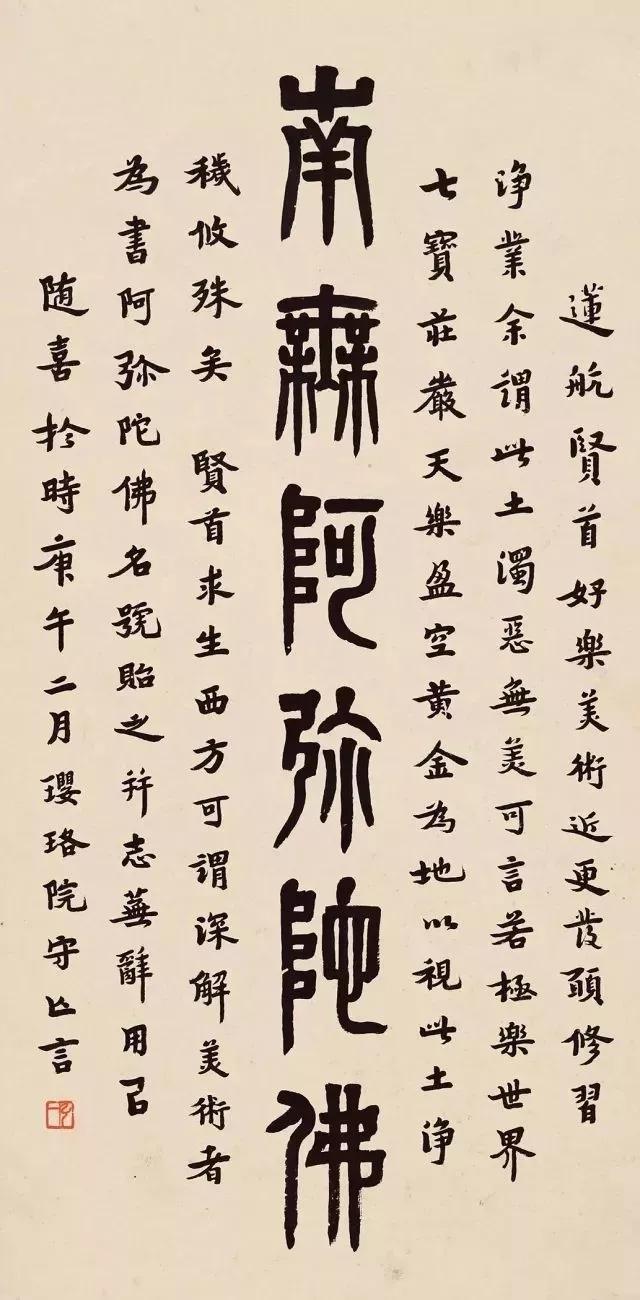 蓮航賢首好樂美術近更發願修習
淨業余謂此土濁惡無美可言若極樂世界
七寶莊嚴天樂盈空黃金為地以視此土淨
南無阿弥陀佛
穢攸殊矣 賢首求生西方可謂深解美術者
為書阿弥陀佛名號貽之并志蕪辭用㠯
随喜於時庚午二月瓔珞院守亡言